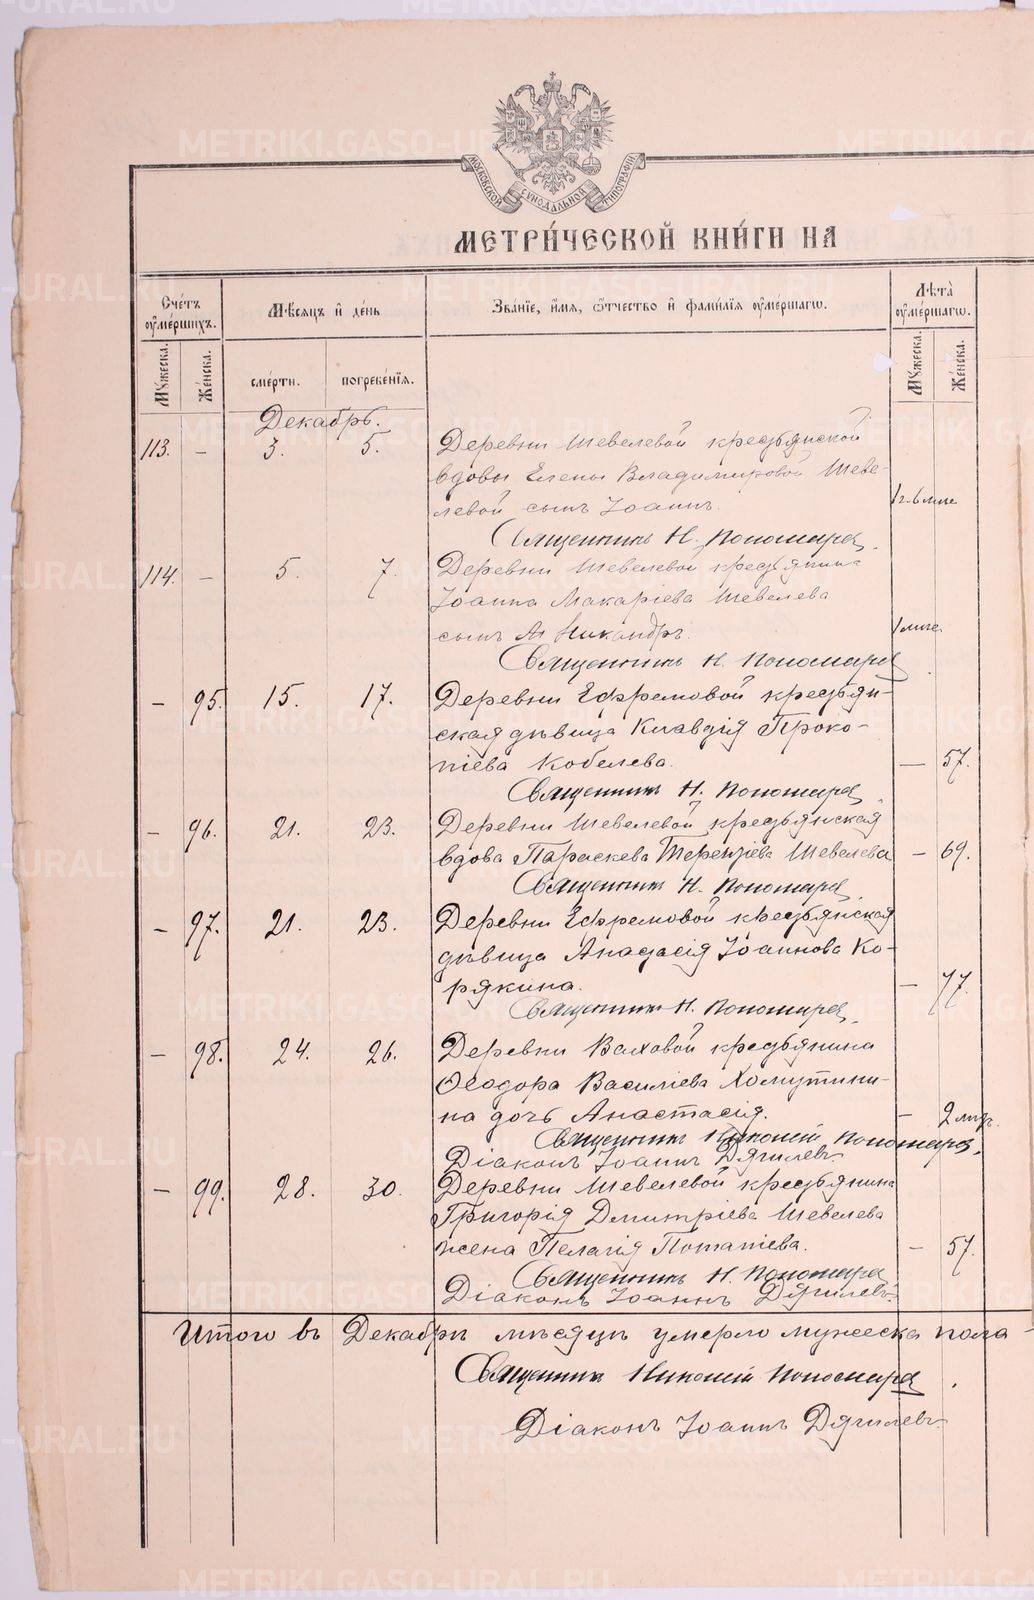 METRIKI.GASO-URAL.RU
МОСКОВСКОЙ СѴНОДАЛЬНОЙ ТИПОГРАФІИ
МЕТРИ́ЧЕСКОЙ КНИ́ГИ НА
Сче́тъ ѹ҆ме́ршихъ.
Мѣ́сяцъ и҆ де́нь
Зва́ніе, и҆́мя, ѻ҆́тчество и҆ фами́лія ѹ҆ме́ршагѡ.
Лѣта̀ ѹ҆ме́ршагѡ.
Мꙋ́жеска.
Же́нска.
сме́рти.
погребе́нія.
Мꙋ́жеска.
Же́нска.
Декабрь.
113. – 3. 5. Деревни Шевелевой крестьянской
вдовы Елены Владимировой Шеве-
левой сынъ Іоаннъ. 1 г. 6 мце
Священникъ Н. Пономарев.
114. – 5. 7. Деревни Шевелевой крестьянина
Іоанна Макаріева Шевелева
сынъ Никандръ. 1 мце.
Священникъ Н. Пономарев
– 95. 15. 17. Деревни Ефремовой крестьян-
ская дѣвица Клавдія Проко-
піева Кобелева. — 57.
Священникъ Н. Пономарев.
– 96. 21. 23. Деревни Шевелевой крестьянская
вдова Параскева Терентіева Шевелева – 69.
Священникъ Н. Пономарев.
– 97. 21. 23. Деревни Ефремовой крестьянская
дѣвица Анастасія Іоаннова Ко-
рякина. – 77.
Священникъ Н. Пономарев.
– 98. 24. 26. Деревни Валовой крестьянина
Ѳеодора Василіева Хомутини-
на дочь Анастасія. – 2 мцъ.
Священникъ Николай Пономарев.
Діаконъ Іоаннъ Дягилевъ.
– 99. 28. 30. Деревни Шевелевой крестьянина
Григорія Дмитріева Шевелева
жена Пелагія Потапіева. – 57.
Священникъ Н. Пономарев
Діаконъ Іоаннъ Дягилевъ.
Итого въ Декабрѣ мѣсяцѣ умерло мужеска пола –
Священникъ Николай Пономарев.
Діаконъ Іоаннъ Дягилевъ.